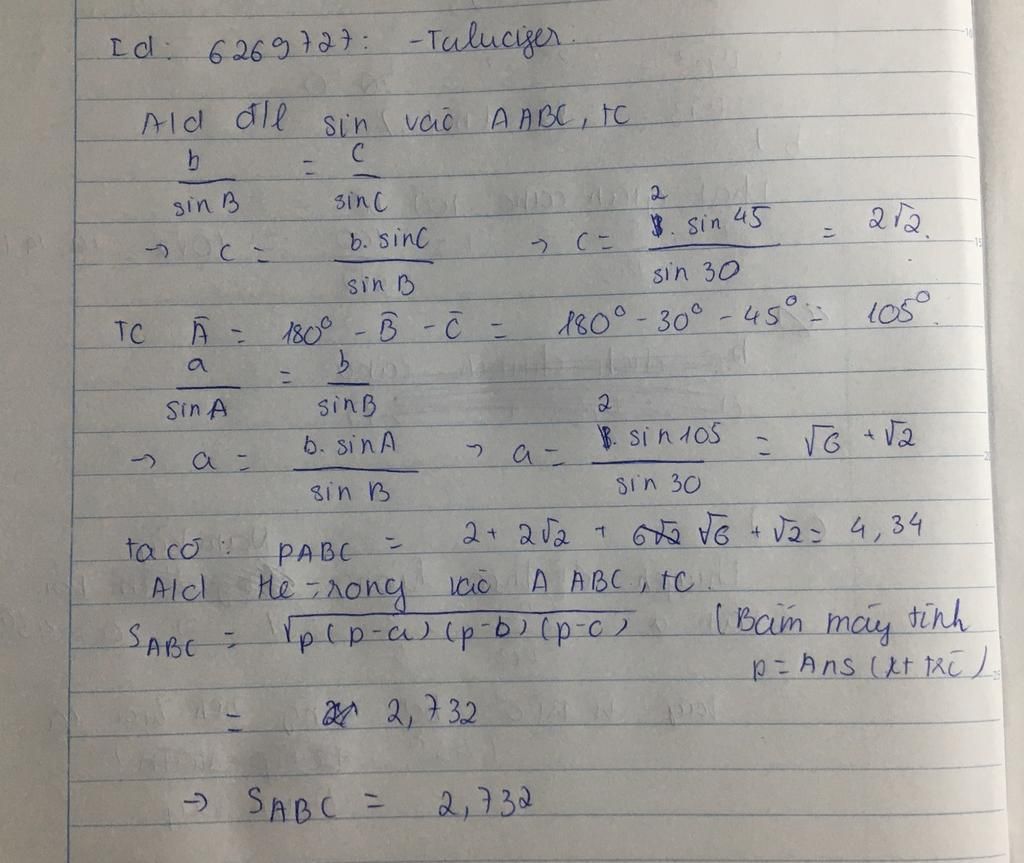 Id: 6269727: -Taluciger.
A/d đ/l sin vào ΔABC, TC
b/sin B = c/sin C
→ c = b. sinC/sin B → c = 2. sin 45/sin 30 = 2√2.
TC Â = 180° - B̂ - Ĉ = 180° - 30° - 45° = 105°.
a/sin A = b/sin B
→ a = b. sinA/sin B → a = 2. sin 105/sin 30 = √6 + √2
ta có: pABC = 2 + 2√2 + √6 + √2 = 4,34
A/d Hê-rông vào Δ ABC, TC.
S_ABC = √p(p-a)(p-b)(p-c) (Bấm máy tính
p = Ans
= 2,732
→ S_ABC = 2,732